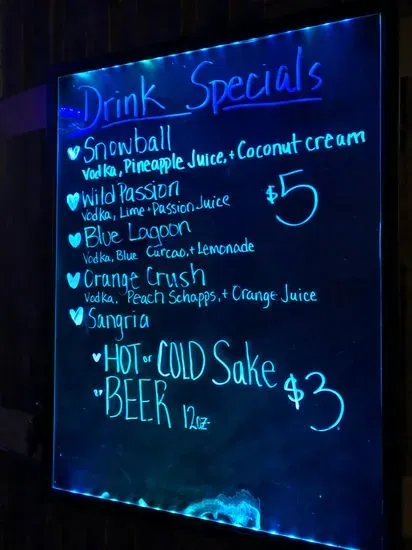 Drink Specials
Snowball
Vodka, Pineapple Juice, + Coconut cream
Wild Passion
Vodka, Lime + Passion Juice
$5
Blue Lagoon
Vodka, Blue Curcao, + Lemonade
Orange Crush
Vodka, Peach Schapps, + Orange Juice
Sangria
HOT or COLD Sake
$3
BEER 12oz